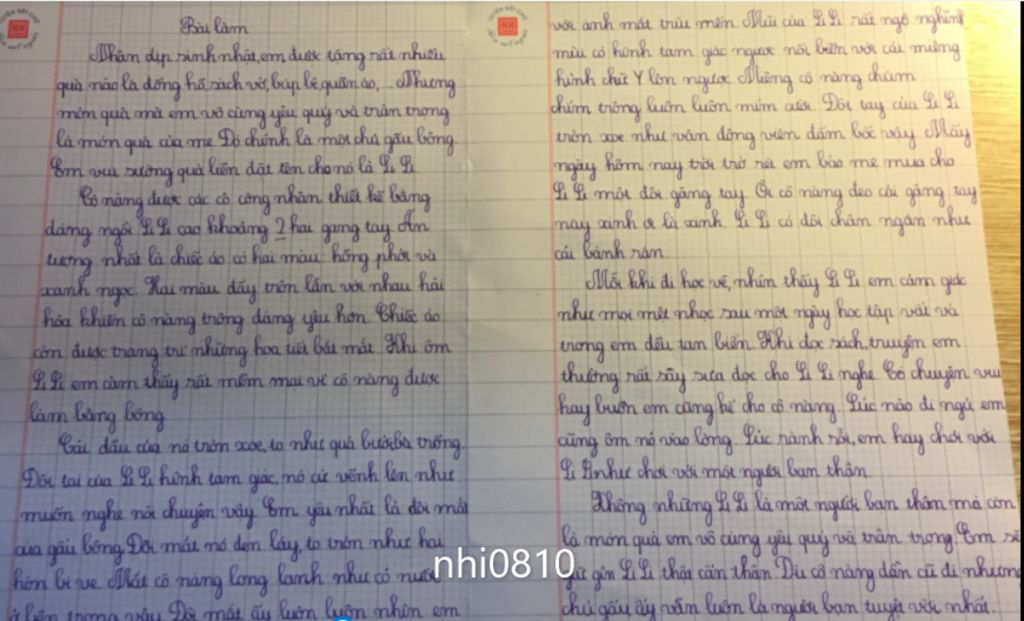 Bài làm
Nhân dịp sinh nhật, em được tặng rất nhiều
quà nào là đồng hồ, sách vở, búp bê, quần áo, ... Nhưng
món quà mà em vô cùng yêu quý và trân trọng
là món quà của mẹ Đó chính là một chú gấu bông.
Em vui sướng quá liền đặt tên cho nó là Li Li.
Cô nàng được các cô công nhân thiết kế bằng
dáng ngồi Li Li cao khoảng 2 hai gang tay Ấn
tượng nhất là chiếc áo có hai màu: hồng phớt và
xanh ngọc. Hai màu đấy trộn lẫn với nhau hài
hòa khiến cô nàng trông đáng yêu hơn. Chiếc áo
còn được trang trí những hoa tiết bắt mắt. Khi ôm
Li Li em cảm thấy rất mềm mại vì cô nàng được
làm bằng bông.
Cái đầu của nó tròn xoe, to như quả bưởi
Đôi tai của Li Li hình tam giác, nó cứ vểnh lên như
muốn nghe nói chuyện vậy Em yêu nhất là đôi mắt
của gấu bông. Đôi mắt nó đen láy, to tròn như hai
hòn bi ve. Mắt cô nàng long lanh như có nước
ở bên trong vậy Đôi mắt ấy luôn luôn nhìn em
với ánh mắt trìu mến. Mũi của Li Li rất ngộ nghĩnh
mũi có hình tam giác ngược nối liền với cái miệng
hình chữ Y lộn ngược. Miệng cô nàng chúm
chím trông luôn luôn mỉm cười. Đôi tay của Li Li
tròn xoe như vận động viên đấm bốc vậy Mấy
ngày hôm nay trời trở rét em bảo mẹ mua cho
Li Li một đôi găng tay. Ôi cô nàng đeo cái găng tay
này xinh ơi là xinh. Li Li có đôi chân ngắn như
cái bánh rán.
Mỗi khi đi học về, nhìn thấy Li Li em cảm giác
như mọi mệt nhọc sau một ngày học tập vất vả
trong em đều tan biến. Khi đọc sách, truyện em
thường rất say sưa đọc cho Li Li nghe. Có chuyện vui
hay buồn em cũng kể cho cô nàng. Lúc nào đi ngủ em
cũng ôm nó vào lòng. Lúc rảnh rỗi, em hay chơi với
Li Li như chơi với một người bạn thân.
Không những Li Li là một người bạn thân mà còn
là món quà em vô cùng yêu quý và trân trọng. Em sẽ
giữ gìn Li Li thật cẩn thận Dù cô nàng dần cũ đi nhưng
chú gấu ấy vẫn luôn là người bạn tuyệt vời nhất.
nhi0810